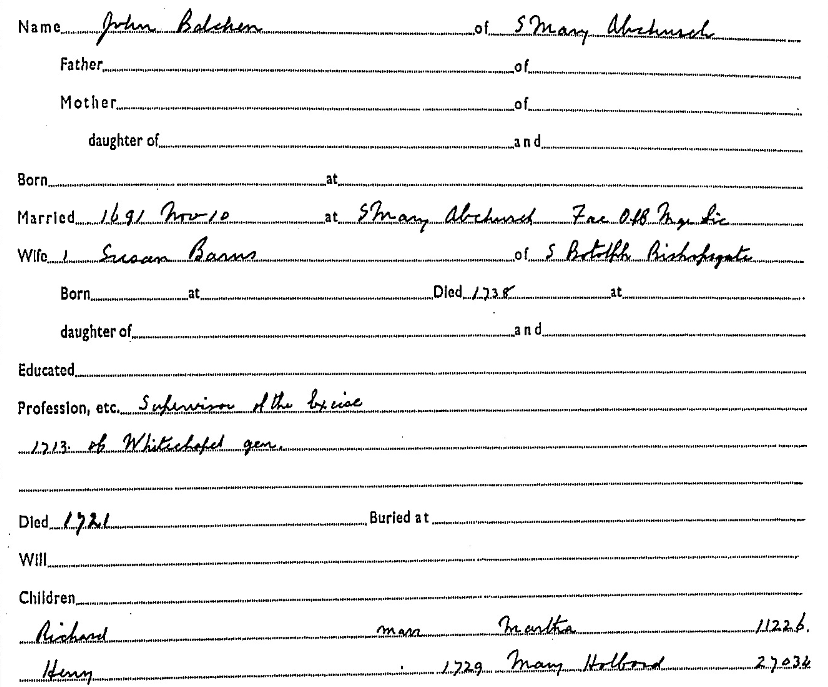 Name John Balchen of S Mary Abchurch
Father of
Mother of
daughter of and
Born at
Married 1691 Nov 10 at S Mary Abchurch Fac Off Mgr Lic
Wife 1 Susan Barns of S Botolph Bishopsgate
Born at Died 1738 at
daughter of and
Educated
Profession, etc. Supervisor of the Excise
1713 of Whitechapel gen.
Died 1721 Buried at
Will
Children
Richard marr Martha 11226.
Henry 1729 Mary Holbord 27034